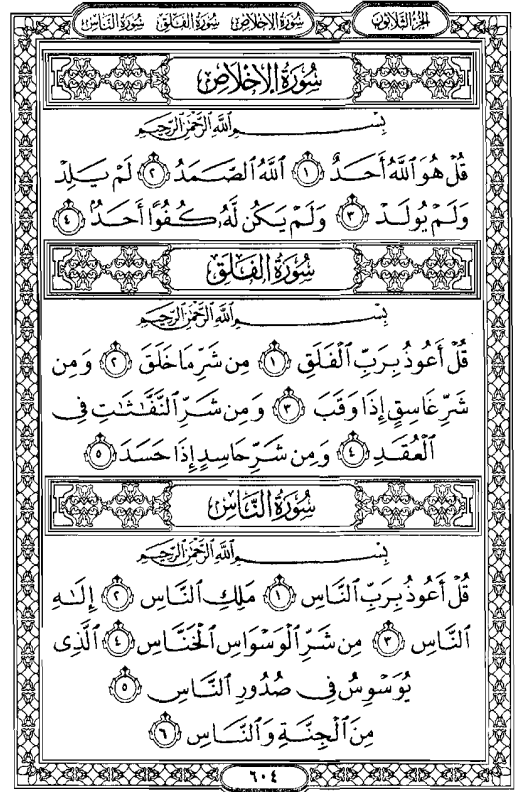 الجزء الثلاثون
سورة الإخلاص سورة الفلق سورة الناس
سُورَةُ الإِخْلَاصِ
بِسْمِ اللَّهِ الرَّحْمَٰنِ الرَّحِيمِ
قُلْ هُوَ ٱللَّهُ أَحَدٌ ١ ٱللَّهُ ٱلصَّمَدُ ٢ لَمْ يَلِدْ
وَلَمْ يُولَدْ ٣ وَلَمْ يَكُن لَّهُۥ كُفُوًا أَحَدٌۢ ٤
سُورَةُ الْفَلَقِ
بِسْمِ اللَّهِ الرَّحْمَٰنِ الرَّحِيمِ
قُلْ أَعُوذُ بِرَبِّ ٱلْفَلَقِ ١ مِن شَرِّ مَا خَلَقَ ٢ وَمِن
شَرِّ غَاسِقٍ إِذَا وَقَبَ ٣ وَمِن شَرِّ ٱلنَّفَّٰثَٰتِ فِى
ٱلْعُقَدِ ٤ وَمِن شَرِّ حَاسِدٍ إِذَا حَسَدَ ٥
سُورَةُ النَّاسِ
بِسْمِ اللَّهِ الرَّحْمَٰنِ الرَّحِيمِ
قُلْ أَعُوذُ بِرَبِّ ٱلنَّاسِ ١ مَلِكِ ٱلنَّاسِ ٢ إِلَٰهِ
ٱلنَّاسِ ٣ مِن شَرِّ ٱلْوَسْوَاسِ ٱلْخَنَّاسِ ٤ ٱلَّذِى
يُوَسْوِسُ فِى صُدُورِ ٱلنَّاسِ ٥
مِنَ ٱلْجِنَّةِ وَٱلنَّاسِ ٦
٦٠٤